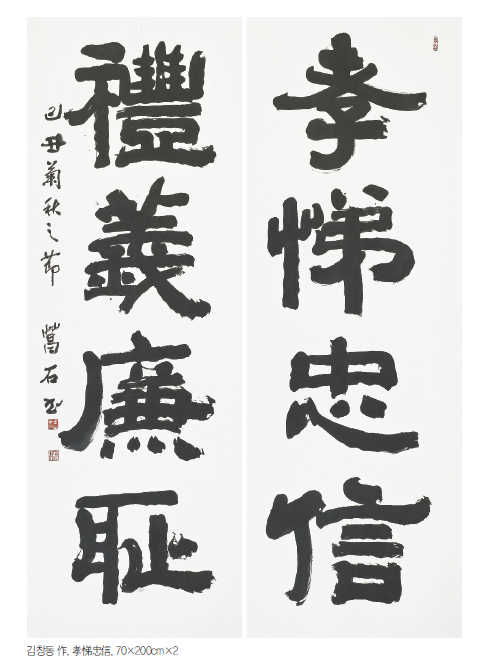 孝悌忠信
禮義廉耻
己丑菊秋之節 石
김창동 作, 孝悌忠信, 70×200cm×2